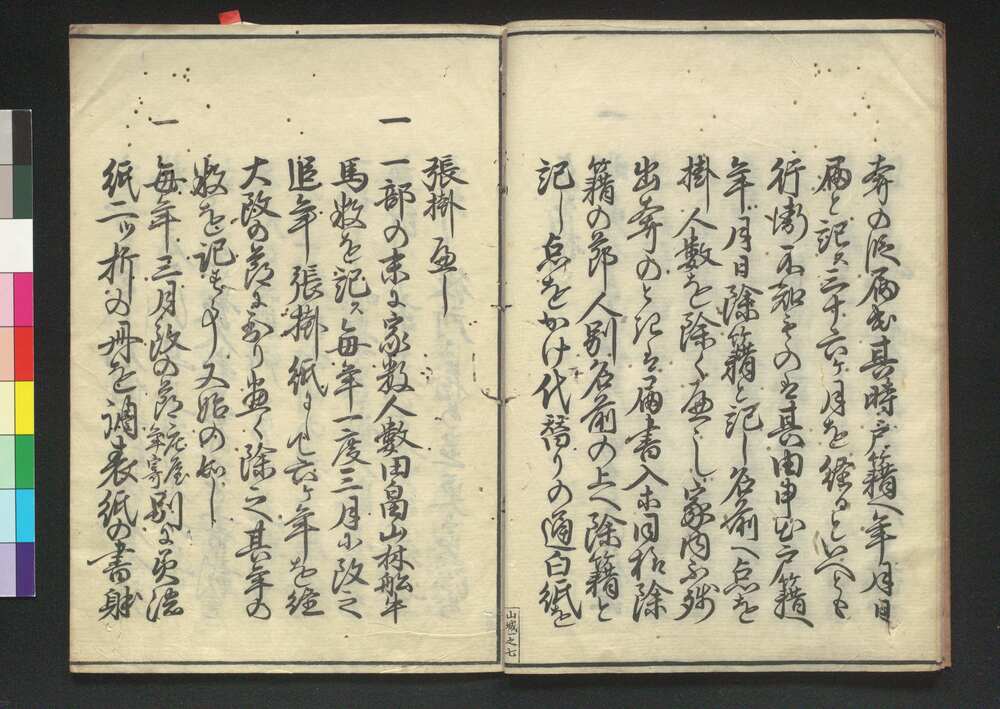 奔の次届出其時戸籍へ年月日
届と記ス三十六ヶ月を経るといへとも
行衛不知ものは其由申出戸籍へ
年月日除籍と記し名前へ点を
掛人数を除くへし家内不残
出奔のときは届書入末同相除
籍の節人別名前の上へ除籍と
記し点をかけ代替りの通白紙を
山城一之七
張掛へし
一 一部の末に家数人数田畠山林船牛
馬数を記ス毎年一度三月に改之
追年張掛紙にし六ヶ年を経
大改の節に至り悉く除之其年の
数を記す事又始の如し
一 毎年三月改の節庄屋年寄別に美濃
紙二ッ折の冊を調表紙の書躰